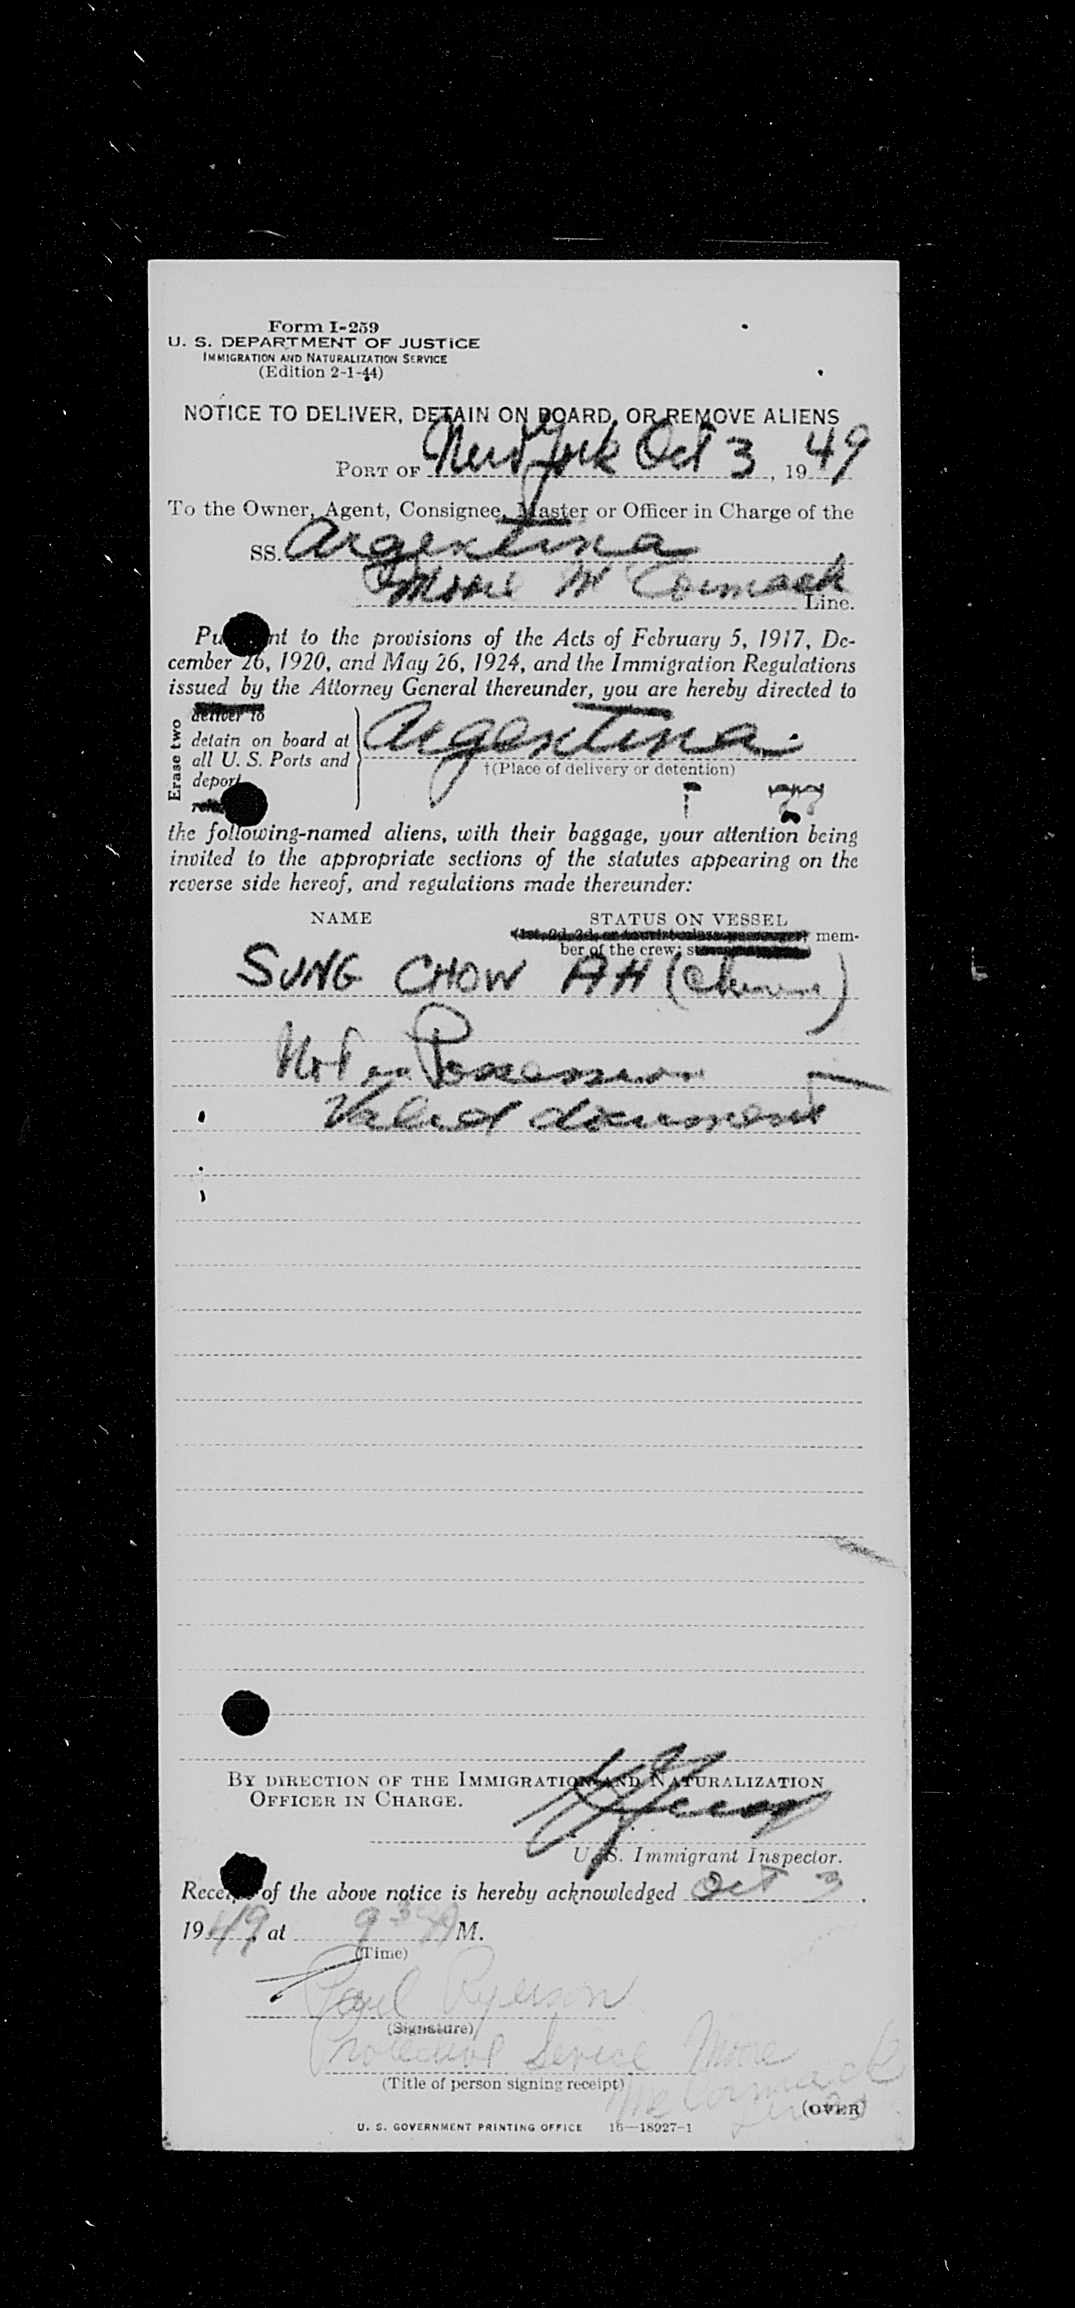 Form I-259
U. S. DEPARTMENT OF JUSTICE
IMMIGRATION AND NATURALIZATION SERVICE
(Edition 2-1-44)
NOTICE TO DELIVER, DETAIN ON BOARD, OR REMOVE ALIENS
PORT OF New York Oct 3, 1949
To the Owner, Agent, Consignee, Master or Officer in Charge of the
SS. Argentina
Moore Mc Cormack
Line.
Pursuant to the provisions of the Acts of February 5, 1917, De-
cember 26, 1920, and May 26, 1924, and the Immigration Regulations
issued by the Attorney General thereunder, you are hereby directed to
Erase two
deliver to
detain on board at
all U. S. Ports and
deport
Argentina
†(Place of delivery or detention)
the following-named aliens, with their baggage, your attention being
invited to the appropriate sections of the statutes appearing on the
reverse side hereof, and regulations made thereunder:
NAME STATUS ON VESSEL
(1st, 2d, 3d, or tourist-class passenger; mem-
ber of the crew;
SUNG CHOW AH (Chinese)
Not in Possession
Valid document
BY DIRECTION OF THE IMMIGRATION AND NATURALIZATION
OFFICER IN CHARGE.
U. S. Immigrant Inspector.
Receipt of the above notice is hereby acknowledged Oct 3.
1949, at 9 30 A M.
(Time)
Paul Ryerson
(Signature)
Protective Service Moore
McCormack
Lines
(Title of person signing receipt)
(OVER)
U. S. GOVERNMENT PRINTING OFFICE 16—18927-1